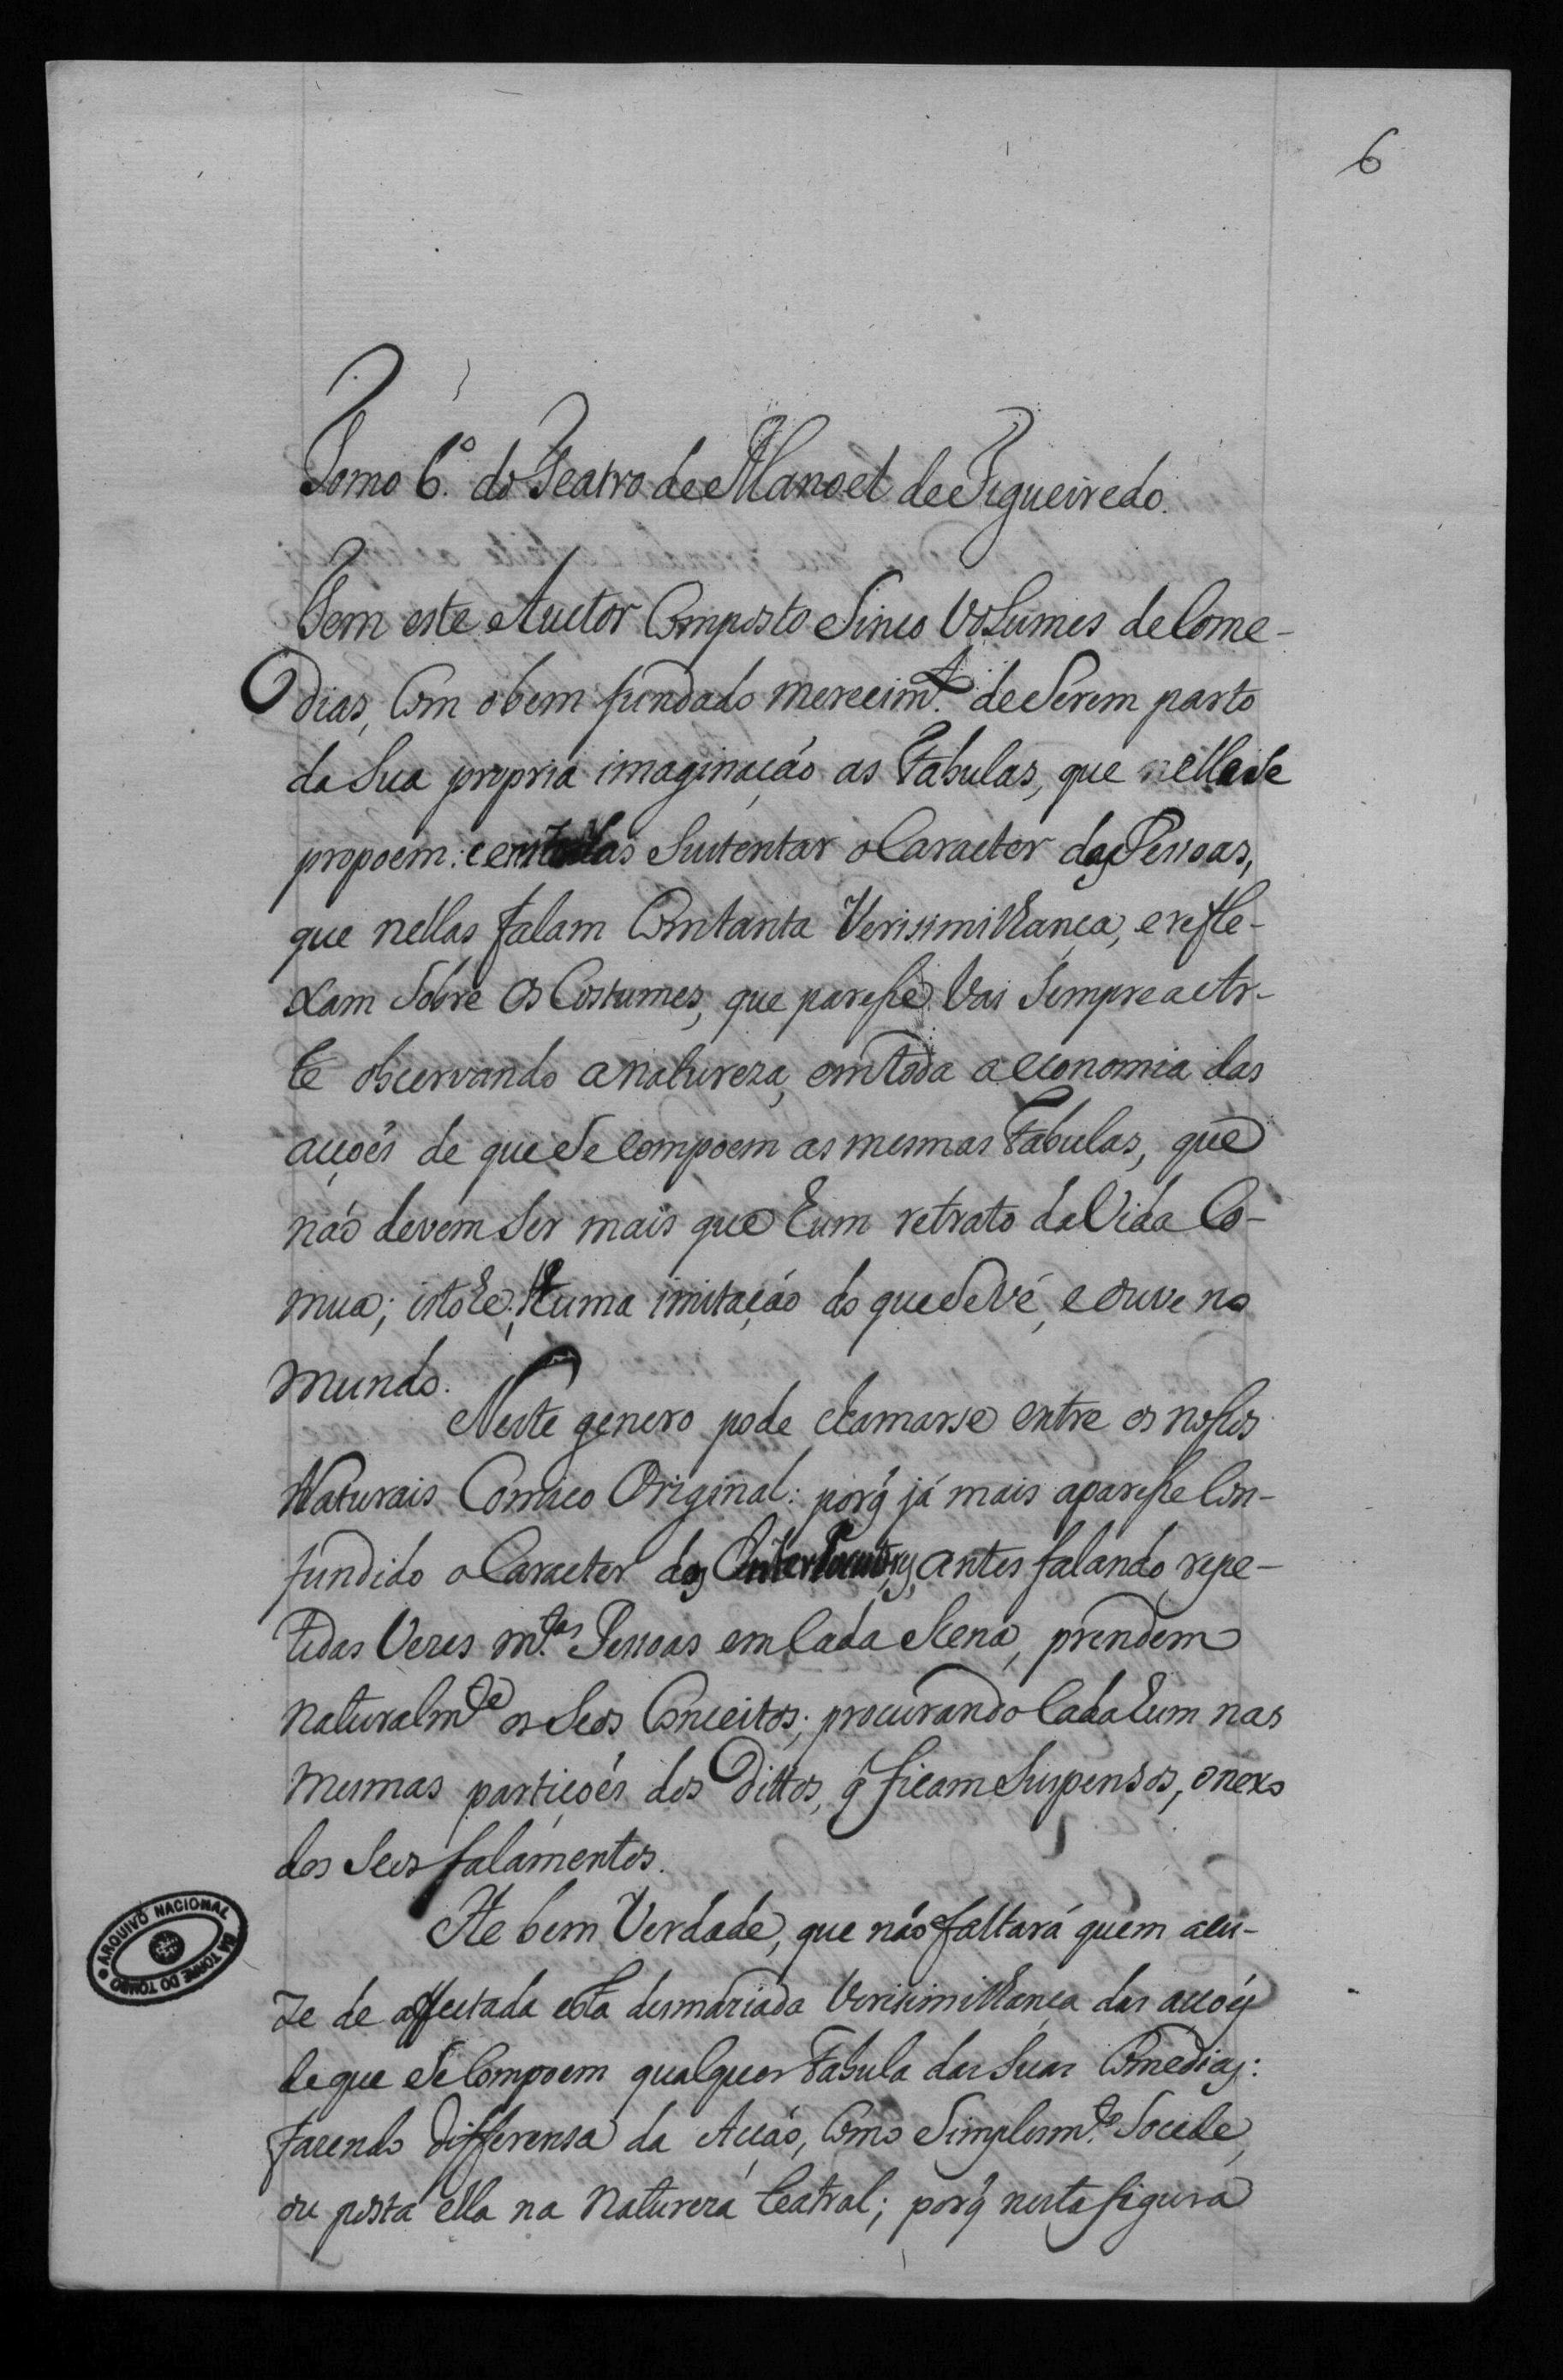 6
Tomo 6.º do Teatro de Manoel de Figueiredo.
Tem este Auctor Composto Sinco Volumes de Come-
dias, Com o bem fundado merecim.to de Serem parto
da Sua propria imaginação as Fabulas, que nellas se
propoem: e em todas Sustentar o Caracter das Pessoas,
que nellas falam Com tanta Verisimilhança, e refle-
xam Sóbre os Costumes, que paresse Vai Sempre a Ar-
te observando a natureza, em toda a economia das
acçoẽs de que Se compoem as mesmas Fabulas, que
não devem Ser mais que hum retrato da Vida Co-
mua; isto he; huma imitação do que Se vé, e ouve no
mundo.
Neste genero pode chamarse entre os nossos
Naturais Comico Original: porq̃ já mais aparesse Con-
fundido o Caracter dos Interlocutores, antes falando repe-
tidas Vezes m.tas Pessoas em Cada Scena, prendem
naturalm.te os Seos Conceitos; procurando Cada hum nas
mesmas partiçoẽs dos Dittos, q̃ ficam Suspensos, o nexo
dos Seos falamentos.
He bem Verdade, que não faltará quem acu-
ze de affectada esta desmaziada Verisimilhança das acçoẽs
de que Se Compoem qualquer Fabula das Suas Comedias:
fazendo differensa da Acção, Como Simplesm.te Socede,
ou posta ella na Natureza teatral; porq̃ nesta figura
ARQUIVO NACIONAL DA TORRE DO TOMBO